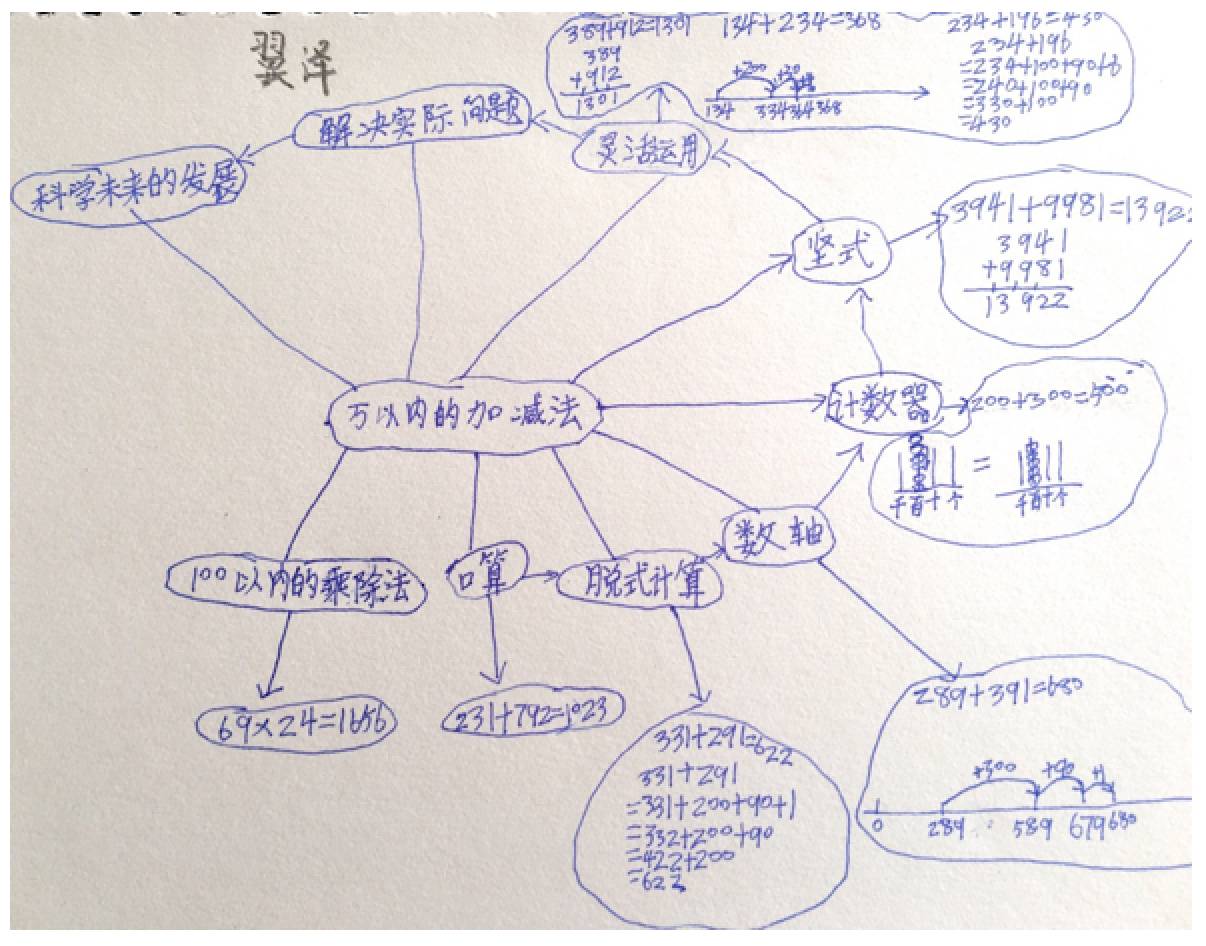 翼泽
389+912=1301
389
+912
1301
134+234=368
+200 +30
134 334 364 368
234+196=430
234+196
=234+100+90+6
=240+100+90
=330+100
=430
解决实际问题
灵活运用
科学未来的发展
竖式
3941+9981=13922
3941
+9981
13922
万以内的加减法
计数器
200+300=500
千百十个 = 千百十个
数轴
100以内的乘除法
口算
脱式计算
69×24=1656
231+792=1023
331+291=622
331+291
=331+200+90+1
=332+200+90
=422+200
=622
289+391=680
+300 +90 +1
0 289 589 679 680